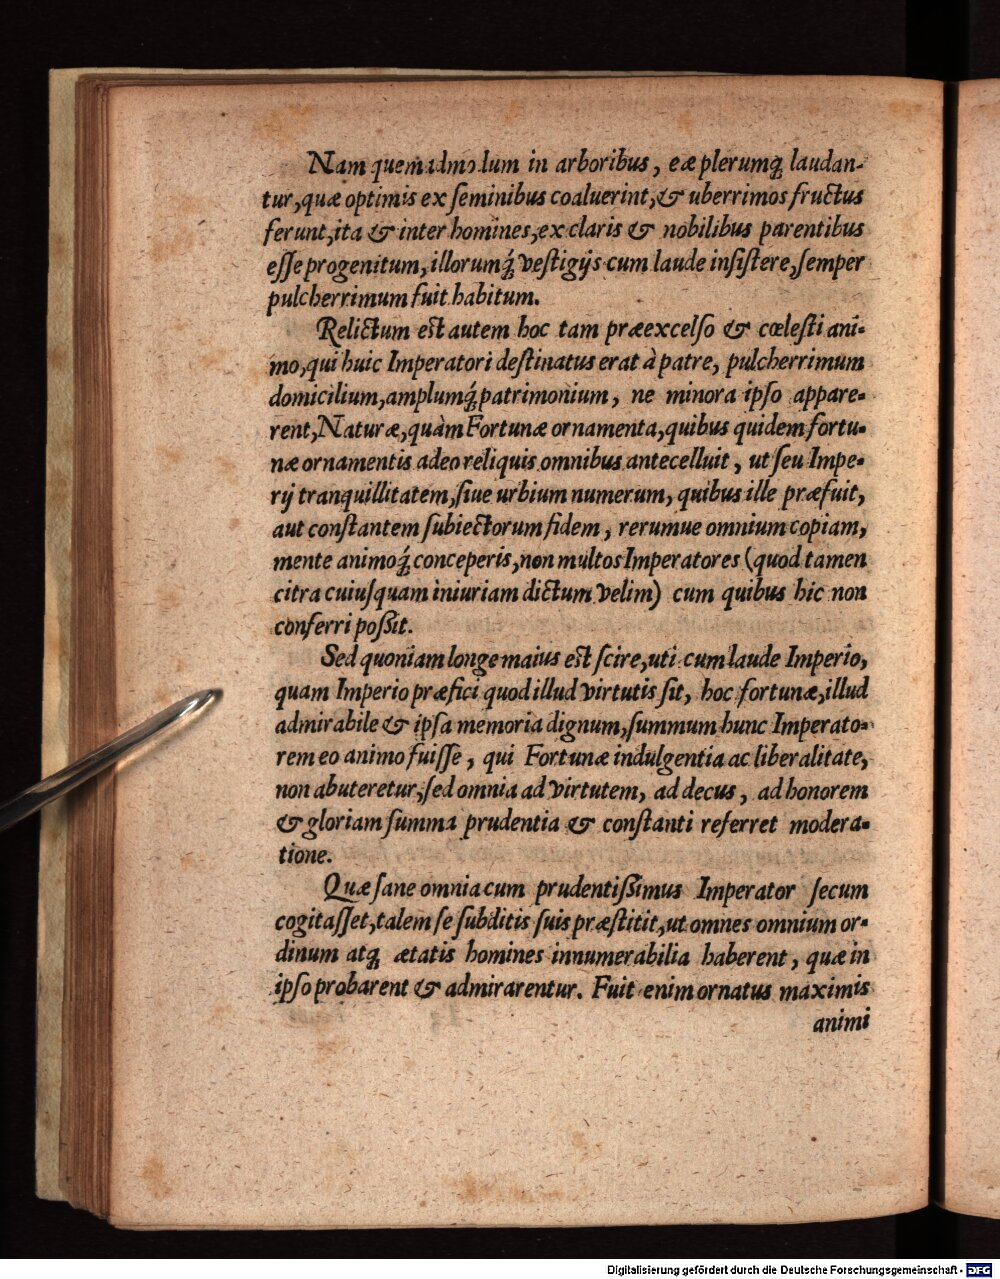 Nam quemadmodum in arboribus, eæ plerumq́ laudan-
tur, quæ optimis ex ſeminibus coaluerint, & uberrimos fructus
ferunt, ita & inter homines, ex claris & nobilibus parentibus
eſſe progenitum, illorumq́ veſtigijs cum laude inſiſtere, ſemper
pulcherrimum fuit habitum.
Relictum eſt autem hoc tam præexcelſo & cœleſti ani-
mo, qui huic Imperatori deſtinatus erat à patre, pulcherrimum
domicilium, amplumq́ patrimonium, ne minora ipſo appare-
rent, Naturæ, quàm Fortunæ ornamenta, quibus quidem fortu-
næ ornamentis adeo reliquis omnibus antecelluit, ut ſeu Impe-
rij tranquillitatem, ſiue urbium numerum, quibus ille præfuit,
aut conſtantem ſubiectorum fidem, rerumue omnium copiam,
mente animoq́ conceperis, non multos Imperatores (quod tamen
citra cuiuſquam iniuriam dictum velim) cum quibus hic non
conferri poſsit.
Sed quoniam longe maius eſt ſcire, uti cum laude Imperio,
quam Imperio præfici quod illud virtutis ſit, hoc fortunæ, illud
admirabile & ipſa memoria dignum, ſummum hunc Imperato-
rem eo animo fuiſſe, qui Fortunæ indulgentia ac liberalitate,
non abuteretur, ſed omnia ad virtutem, ad decus, ad honorem
& gloriam ſumma prudentia & conſtanti referret modera-
tione.
Quæ ſane omnia cum prudentiſsimus Imperator ſecum
cogitaſſet, talem ſe ſubditis ſuis præſtitit, ut omnes omnium or-
dinum atq́ ætatis homines innumerabilia haberent, quæ in
ipſo probarent & admirarentur. Fuit enim ornatus maximis
animi
Digitalisierung gefördert durch die Deutsche Forschungsgemeinschaft - DFG